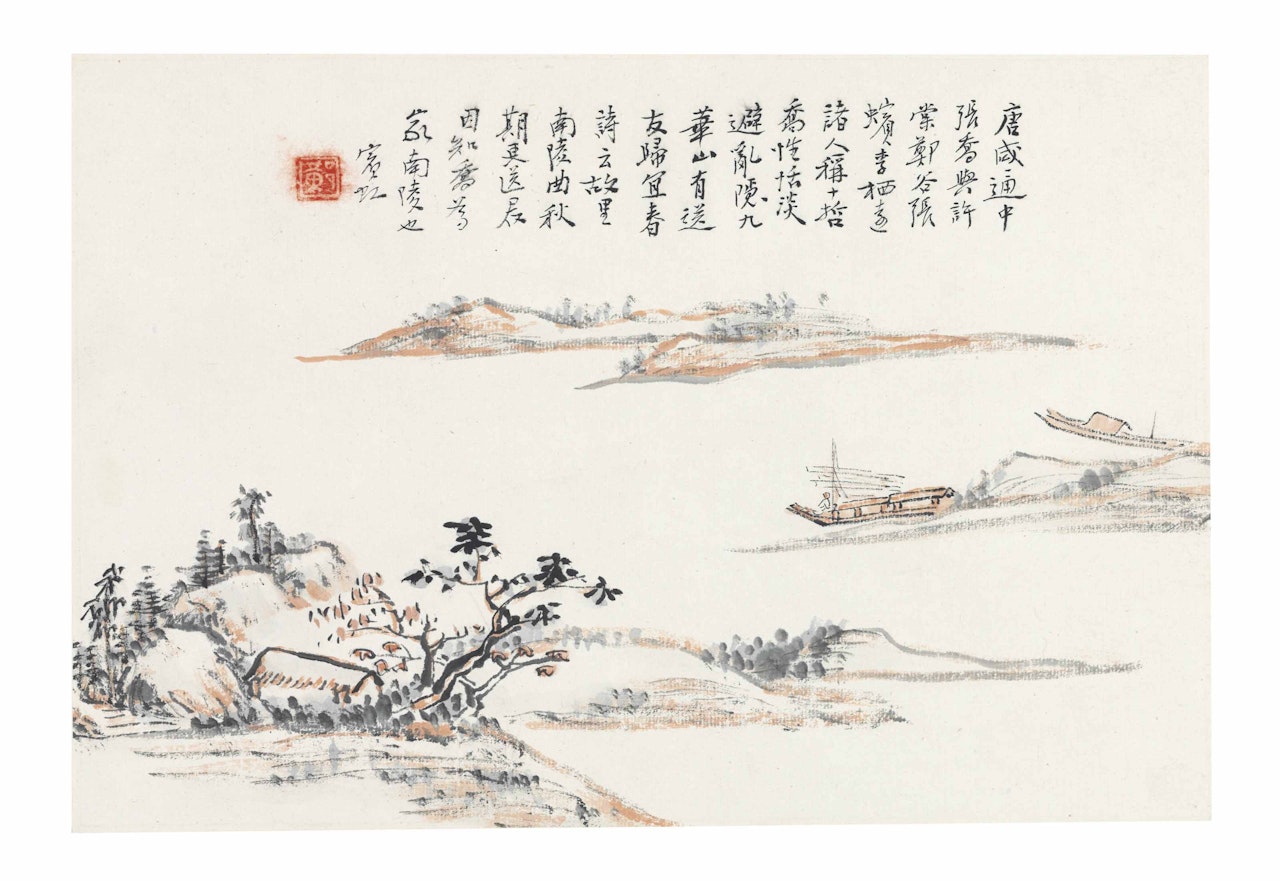 唐咸通中
張喬與許
棠鄭谷張
蠙李栖遠
諸人稱十哲
喬性恬淡
避亂隱九
華山有送
友歸宜春
詩云故里
南陵曲秋
期更送君
因知喬蓋
家南陵也
賓虹